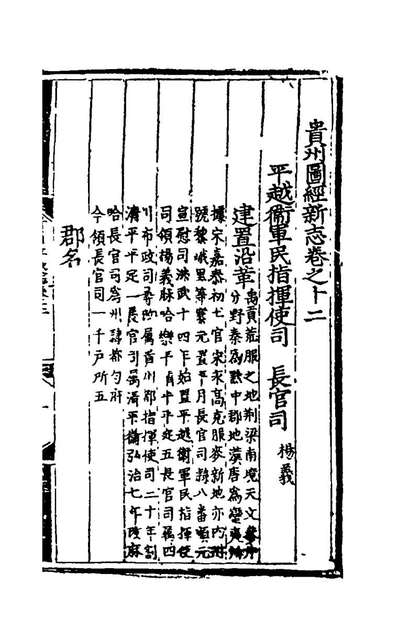 貴州圖經新志卷之十二
平越衞軍民指揮使司　長官司　楊義
建置沿革　禹貢荒服之地荆梁南境天文參井
分野秦爲黔中郡地漢唐爲蠻夷
據宋嘉泰初土官宋永高克服麥新地亦内附
號黎峨里等寨元置平月長官司隸八番順元
宣慰司洪武十四年始置平越衞軍民指揮使
司領楊義麻哈樂平清平平定五長官司屬四
川布政司尋改屬貴州都指揮使司二十年割
清平平定二長官司屬清平衞弘治七年改麻
哈長官司爲州隸都勻府
今領長官司一千戶所五
郡名